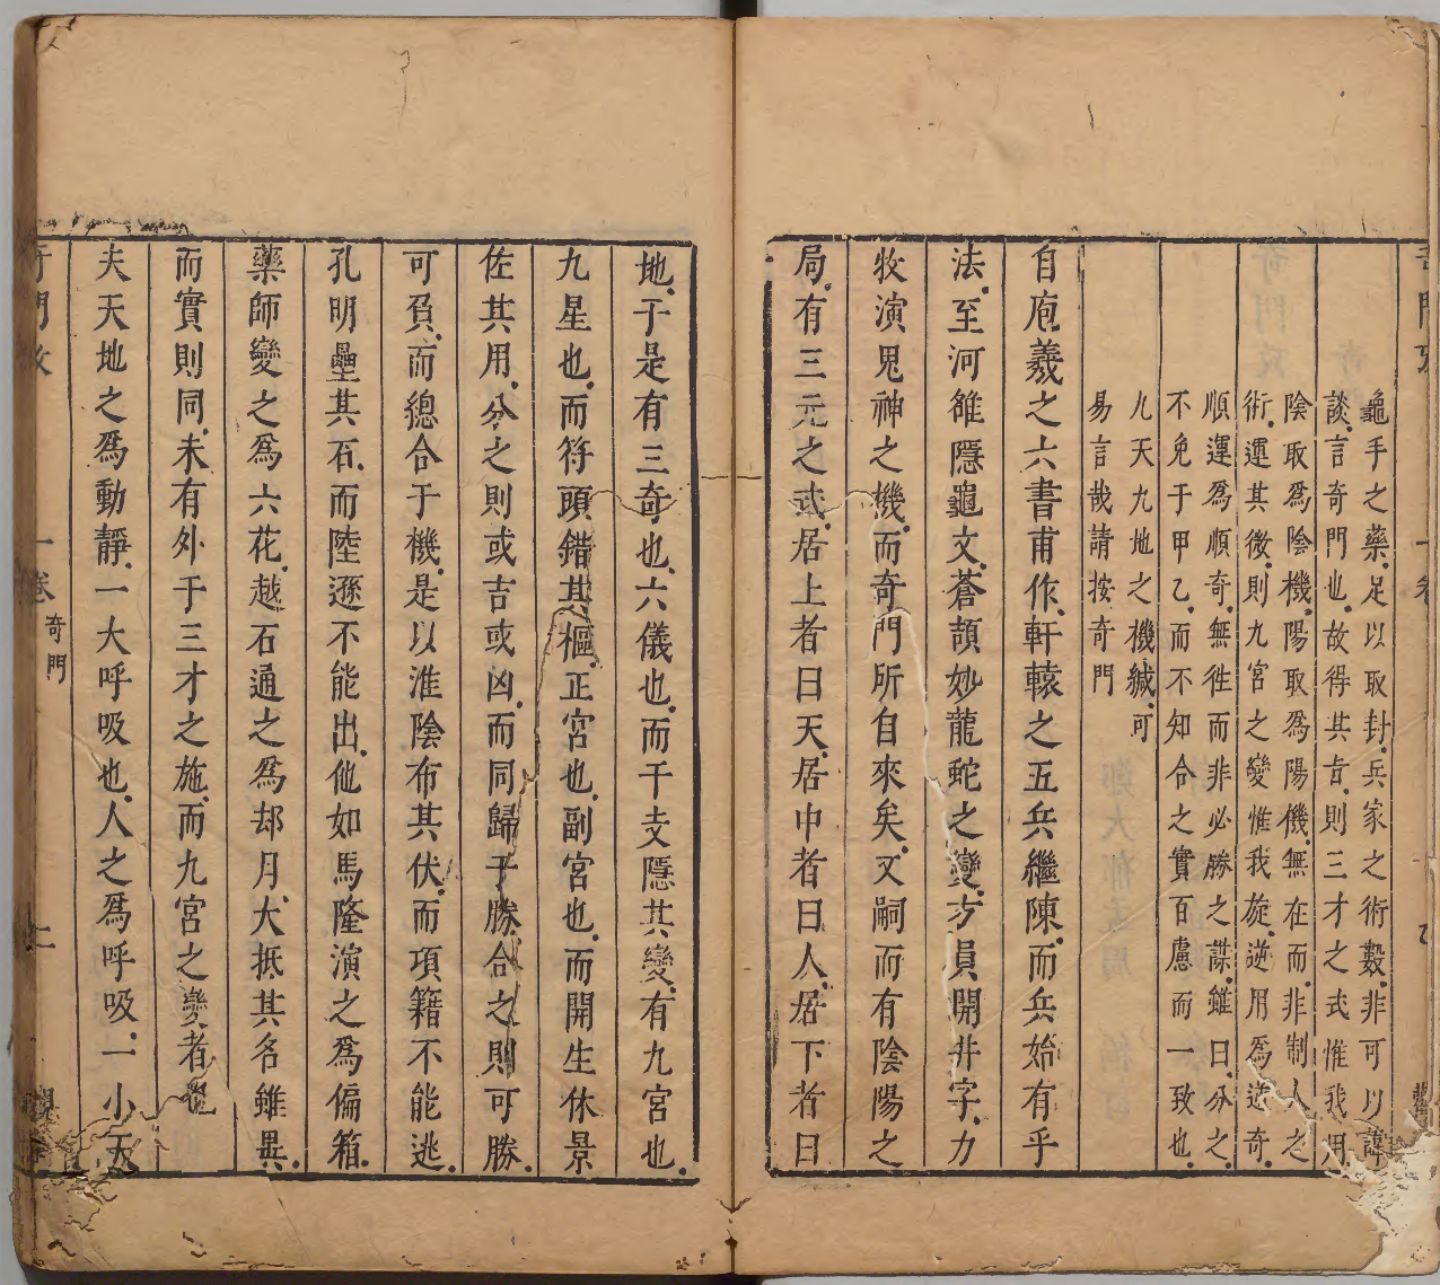 龜手之藥足以取封兵家之術數非可以譚
談言奇門也故得其旨則三才之式惟我用
陰取爲陰機陽取爲陽機無在而非制人之
術運其微則九宮之變惟我旋逆用爲逆奇
順運爲順奇無徃而非必勝之謀雖曰分之
不免于甲乙而不知合之實百慮而一致也
九天九地之機緘可
易言哉請按奇門
自庖羲之六書甫作軒轅之五兵繼陳而兵始有乎
法至河雒隱龜文蒼頡妙龍蛇之變方員開井字力
牧演鬼神之機而奇門所自來矣又嗣而有陰陽之
局有三元之式居上者曰天居中者曰人居下者曰
地于是有三奇也六儀也而干支隱其變有九宮也
九星也而符頭錯其樞正宮也副宮也而開生休景
佐其用分之則或吉或凶而同歸于勝合之則可勝
可負而總合于機是以淮陰布其伏而項籍不能逃
孔明壘其石而陸遜不能出他如馬隆演之爲偏箱
藥師變之爲六花越石通之爲却月大抵其名雖異
而實則同未有外于三才之施而九宮之變者也
夫天地之爲動靜一大呼吸也人之爲呼吸一小天
奇門攷 一卷 奇門 二